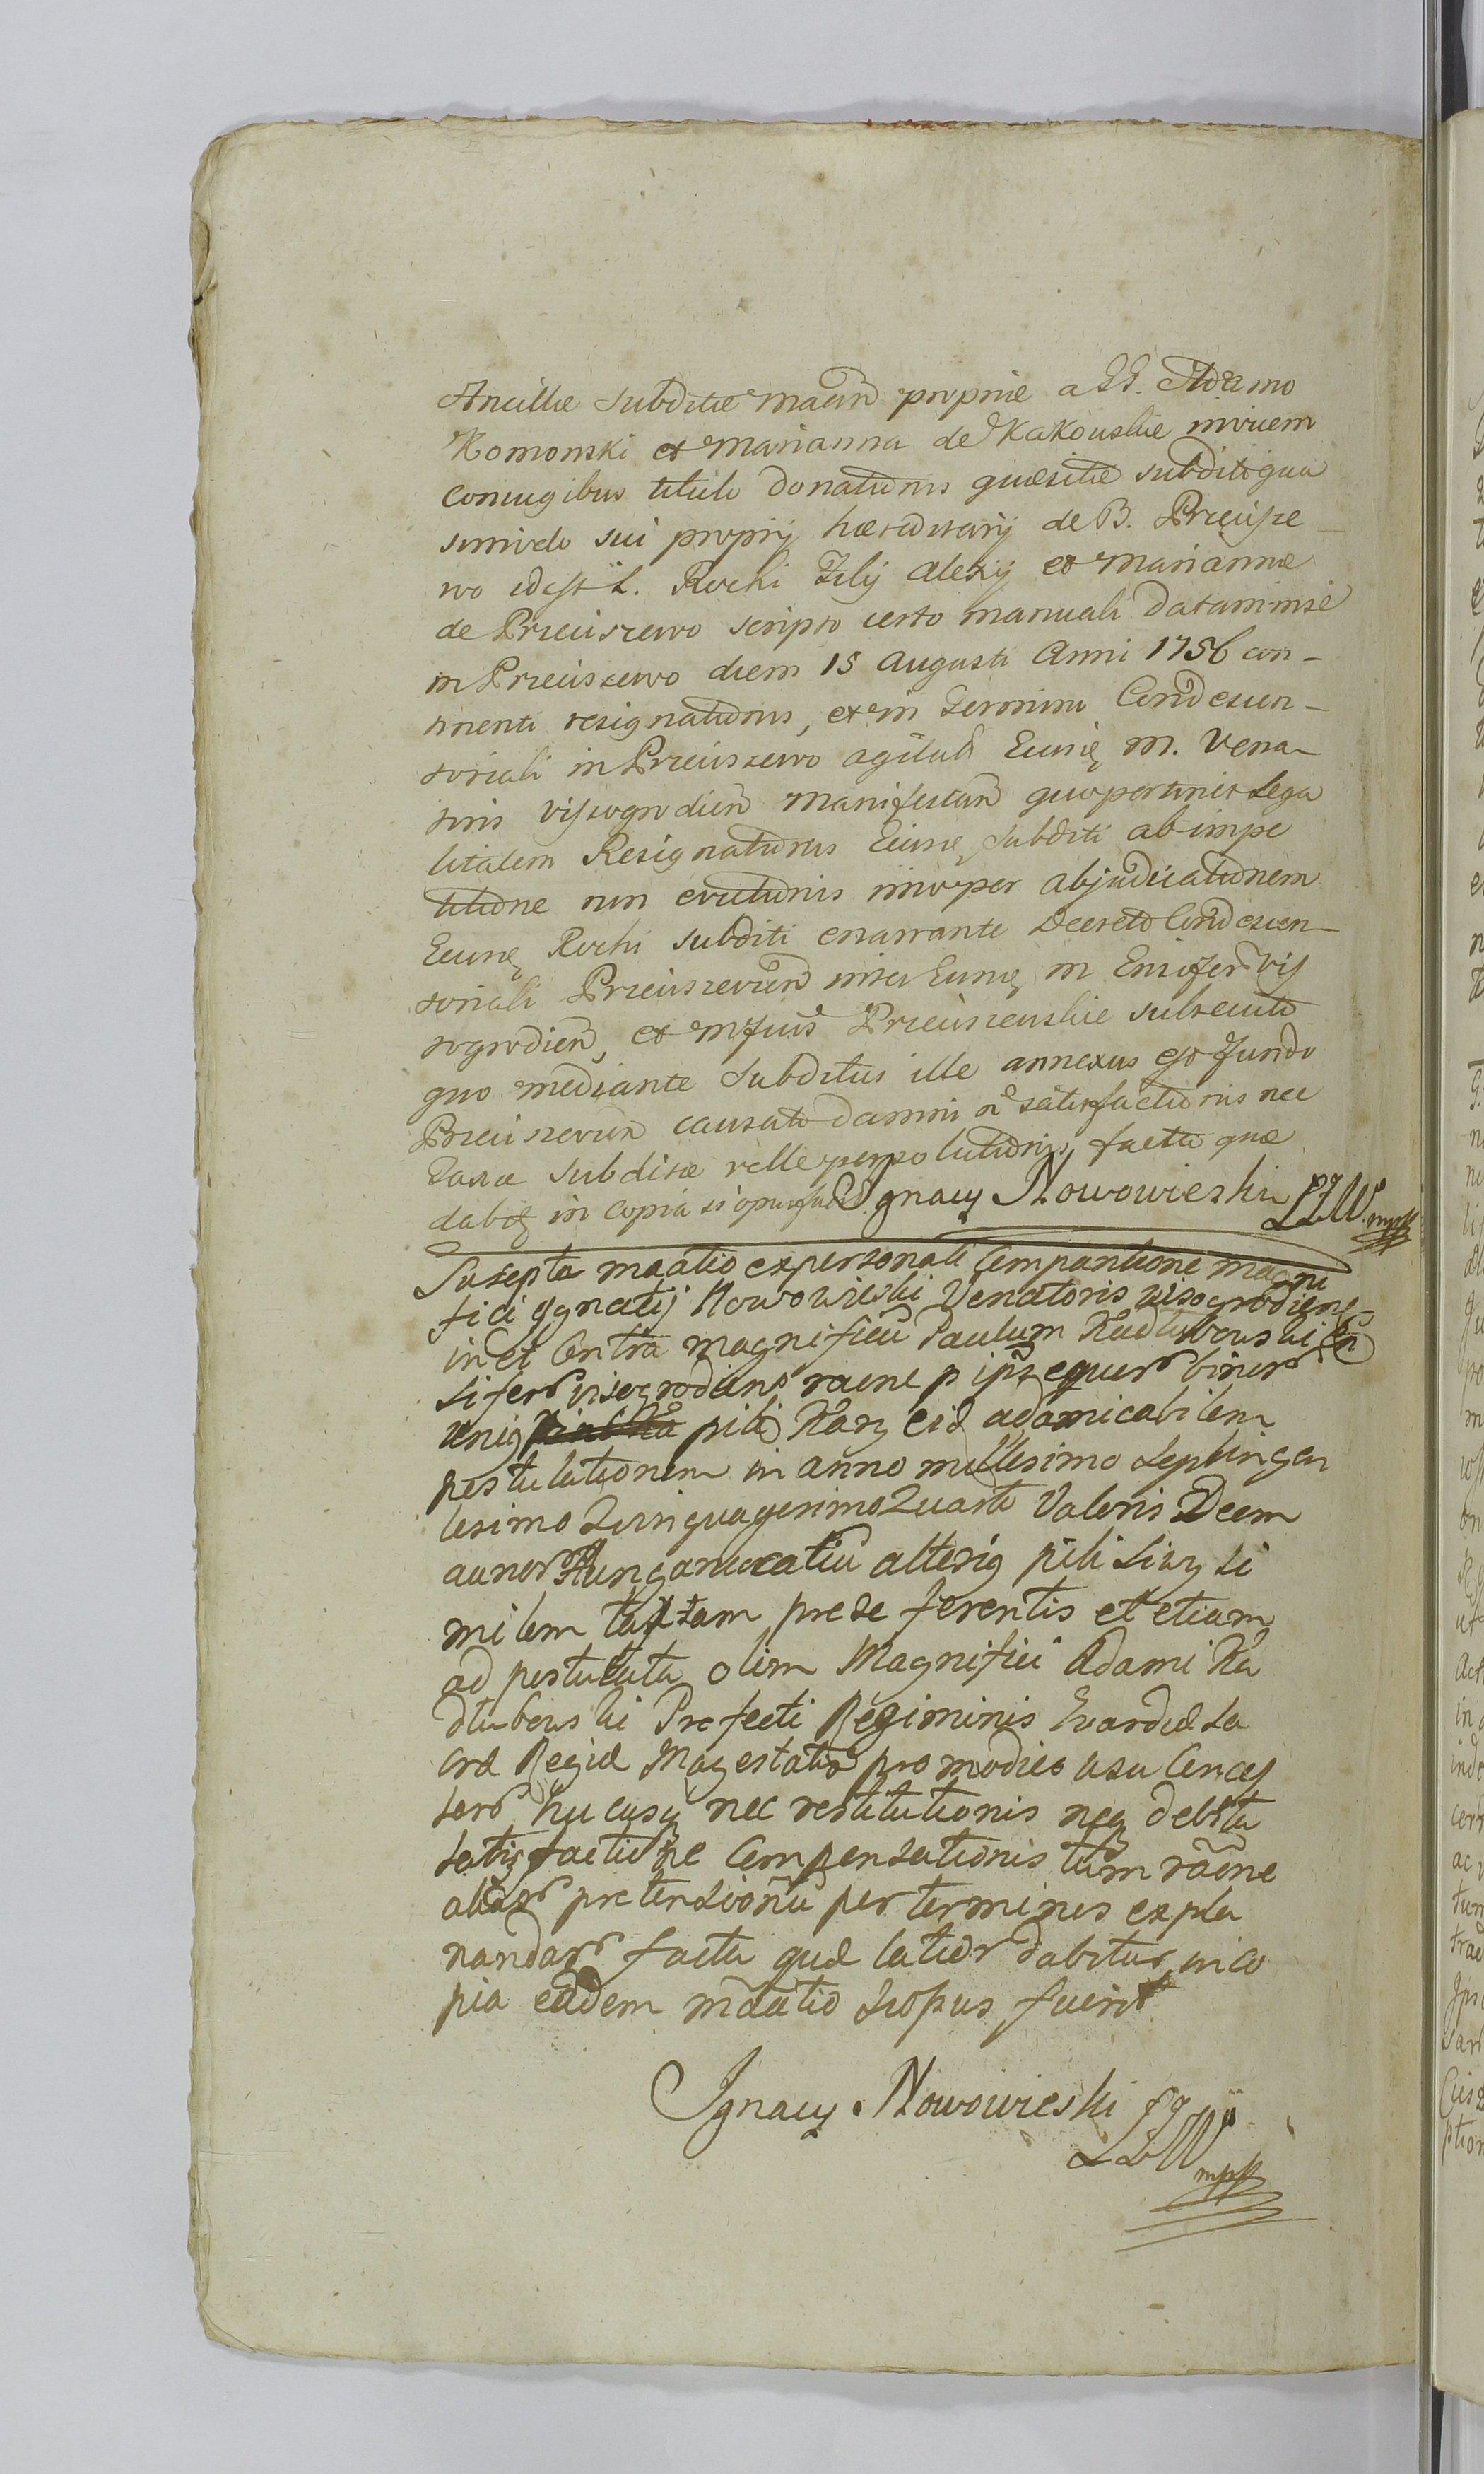 Ancillae Subditae Maãn propriae a GG. Adamo
Komorski et Marianna de Kakouskie invicem
coniugibus titulo donationis quaesitae subditi qua
simirelo sui proprij haereditarij de B. Prciusze
wo idest L. Rochi Filij Alexij et Mariannae
de Prciuszewo scripto certo manuali Datarum se
in Prciuszewo diem 15 Augusti Anni 1756 con-
tinenti resignationis, et in Termino Condescen-
soriali in Prciuszewo agitato Eiusq M. Vena-
toris Vissogrodien Manifestan quo pertinet Lega
litatem Resignationis Eiusq subditi ab impe
titione non evictionis imo per abjudicationem
Eiusq Rochi subditi enarrante Decreto Condescen-
soriali Prciuszevien inter Eumq M Ensiferu Vis
sogrodien, et MJuis Prciuszeuskie subsecuto
quo mediante subditus ille annexus est fundo
Prciuszevien causati damni n satisfactionis nec
Taxae subditae velle persolutionis facta quae
dabiz in copia si opus fuerit Ignacy Nowowieski ŁW mpp
Suscepta maãtio ex personali Comparitione Magni
fici Ignatij Nowowieski Venatoris visogrodiens
in et Contra magnificu Paulum Kadlubouski En
siferu visogrodiens raene p ipz equor binor
unig pili Kary eid ad amicabilem
postulationem in anno millesimo Septingen
tesimo Quinquagesimo Quarto Valoris Decem
aunor Hungaricatiu alterig pili Siwy si
milem taxam prese ferentis et etiam
ad postulata olim Magnifici Adami Ka
dlubouski Prefecti Regiminis Gvardiae Sa
crae Regiae Magestatis pro modico usu Conces
sor hucusq nec restitutionis neq debita
satisfactione Compensationis tum raene
aliar pretensionu per terminus expla
nandar facta quae latior dabitur in co
pia eadem maãtio si opus fuerit
Ignacy Nowowieski
ŁW mpp